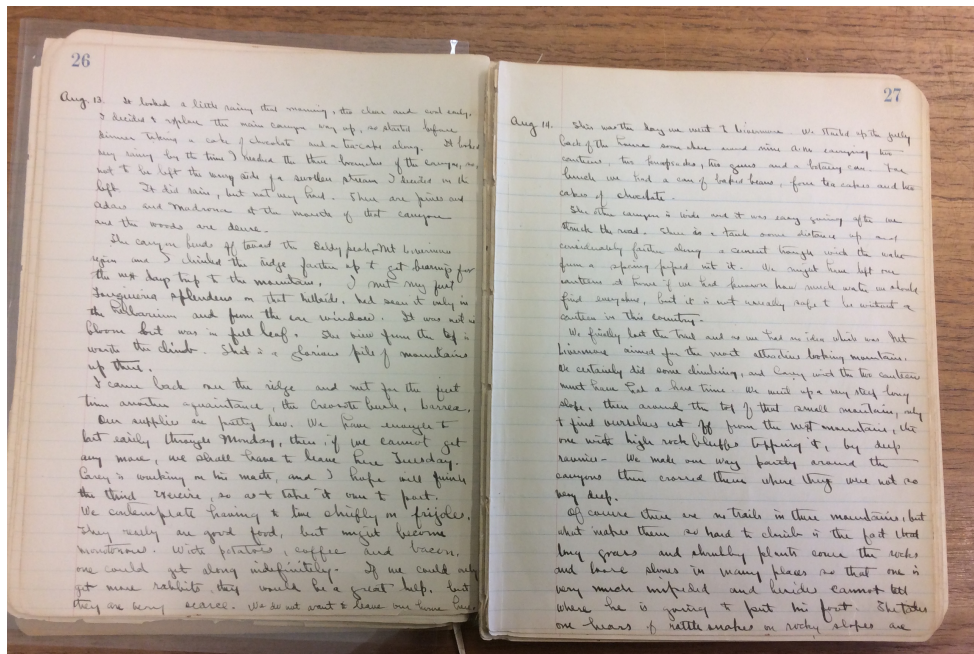 26
Aug. 13. It looked a little rainy that morning, tho clear and cool early.
I decided to explore the main canyon way up, so started before
dinner taking a cake of chocolate and a tea cake along. It looked
very rainy by the time I reached the three branches of the canyon, so,
not to be left the wrong side of a swollen stream I decided on the
left. It did rain, but not very hard. There are pines and
and Madrona at the mouth of that canyon
and the woods are dense.
The canyon bends off toward the Baldy peak, Mt Livermore
again and I climbed the ridge farther up to get bearings for
the next day's trip to the mountain. I met my first
Fouquieria splendens on that hillside. Had seen it only in
the herbarium and from the car window. It was not in
bloom but was in full leaf. The view from the top is
worth the climb. That is a glorious pile of mountains
up there.
I came back over the ridge and met for the first
time another acquaintance, the Creosote bush, Larrea.
Our supplies are pretty low. We have enough to
last easily through Monday, then if we cannot get
any more, we shall have to leave here Tuesday.
Carey is working on his math, and I hope will finish
the third exercise, so as to take it over to post.
We contemplate having to live chiefly on frijole.
They really are good food, but might become
monotonous. With potatoes, coffee and bacon,
one could get along indefinitely. If we could only
get more rabbits, they would be a great help, but
they are very scarce. We do not want to leave our home here.
27
Aug 14. This was the day we went to Livermore. We started up the gully
back of the house some where around nine A.M. carrying two
canteens, two knapsacks, two guns and a botany can. For
lunch we had a can of baked beans, four tea cakes and two
cakes of chocolate.
The other canyon is wide and it was easy going after we
struck the road. There is a tank some distance up and
considerably farther along a cement trough with the water
from a spring piped into it. We might have left one
canteen at home if we had known how much water we should
find everywhere, but it is not usually safe to be without a
canteen in this country.
We finally lost the trail and as we had no idea which was Mt
Livermore aimed for the most attractive looking mountain.
We certainly did some climbing, and Carey with the two canteens
must have had a hard time. We went up a very steep long
slope, then around the top of that small mountain, only
to find ourselves cut off from the next mountain, the
one with high rock bluffs topping it, by deep
ravines. We made our way partly around the
canyons then crossed them where they were not so
very deep.
Of course there are no trails in these mountains, but
what makes them so hard to climb is the fact that
long grass and shrubby plants cover the rocks
and loose stones in many places so that one is
very much impeded and besides cannot tell
where he is going to put his foot. The tales
one hears of rattlesnakes on rocky slopes are